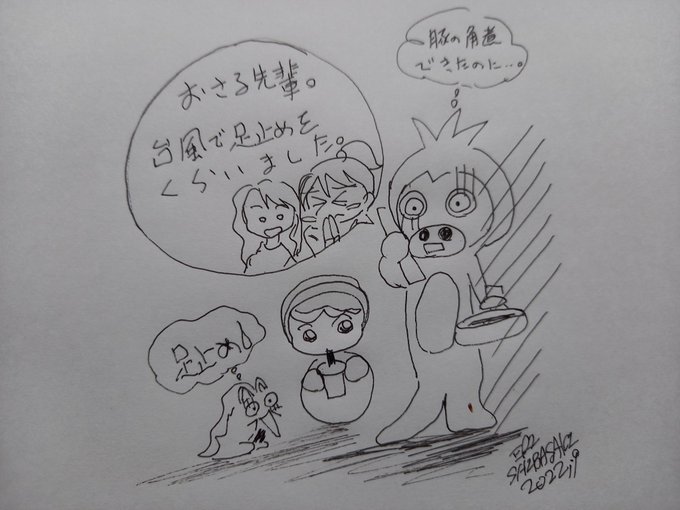 豚の角煮
できたのに…。
おさる先輩。
台風で足止めを
くらいました。
足止め!
ERI
SHIBASAKI
2022.9